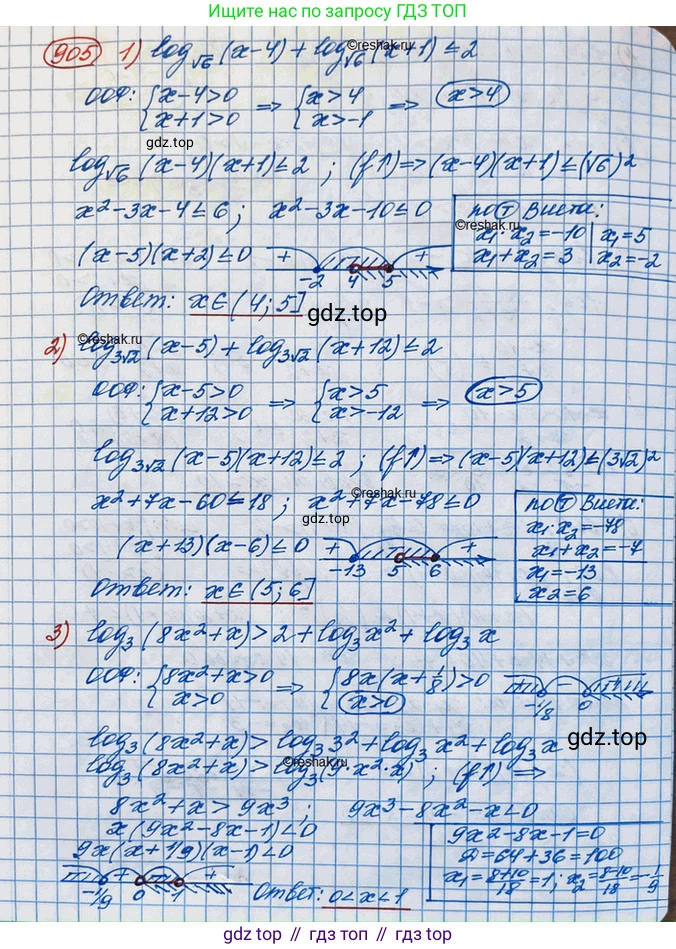 Ищите нас по запросу ГДЗ ТОП
905 1) log_√6 (x-4) + log_√6 (x+1) ≤ 2
©reshak.ru
ООФ: {x-4>0 => {x>4 => x>4
{x+1>0 {x>-1
gdz.top
log_√6 (x-4)(x+1) ≤ 2 ; (f↑) => (x-4)(x+1) ≤ (√6)²
x²-3x-4≤6; x²-3x-10≤0
по Т Виета:
©reshak.ru
x₁·x₂=-10 | x₁=5
x₁+x₂=3 | x₂=-2
(x-5)(x+2)≤0 + +
-2 4 5
Ответ: x∈(4;5]
gdz.top
©reshak.ru
2) log_3√2 (x-5) + log_3√2 (x+12) ≤ 2
ООФ: {x-5>0 => {x>5 => x>5
{x+12>0 {x>-12
log_3√2 (x-5)(x+12) ≤ 2 ; (f↑) => (x-5)(x+12) ≤ (3√2)²
©reshak.ru
x²+7x-60≤18; x²+7x-78≤0
gdz.top
по Т Виета:
x₁·x₂=-78
x₁+x₂=-7
x₁=-13
x₂=6
(x+13)(x-6)≤0 + +
-13 5 6
Ответ: x∈(5;6]
3) log₃(8x²+x) > 2 + log₃x² + log₃x
ООФ: {8x²+x>0 => {8x(x+1/8)>0 -
{x>0 {x>0
-1/8 0
gdz.top
log₃(8x²+x) > log₃3² + log₃x² + log₃x
©reshak.ru
log₃(8x²+x) > log₃(9·x²·x) ; (f↑) =>
8x²+x>9x³; 9x³-8x²-x<0
x(9x²-8x-1)<0
9x(x+1/9)(x-1)<0
9x²-8x-1=0
D=64+36=100
x₁=8+10/18=1; x₂=8-10/18=-1/9
+ - +
-1/9 0 1
Ответ: 0<x<1
gdz.top // гдз.топ // гдз.top